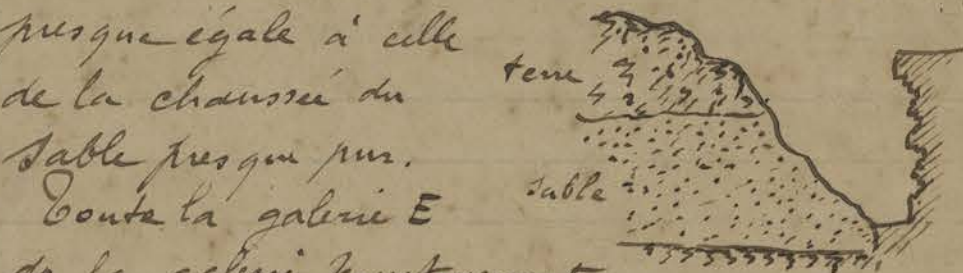 presque égale à celle
de la chaussée du
sable presque pur.
Toute la galerie E
de la galerie
terre
sable